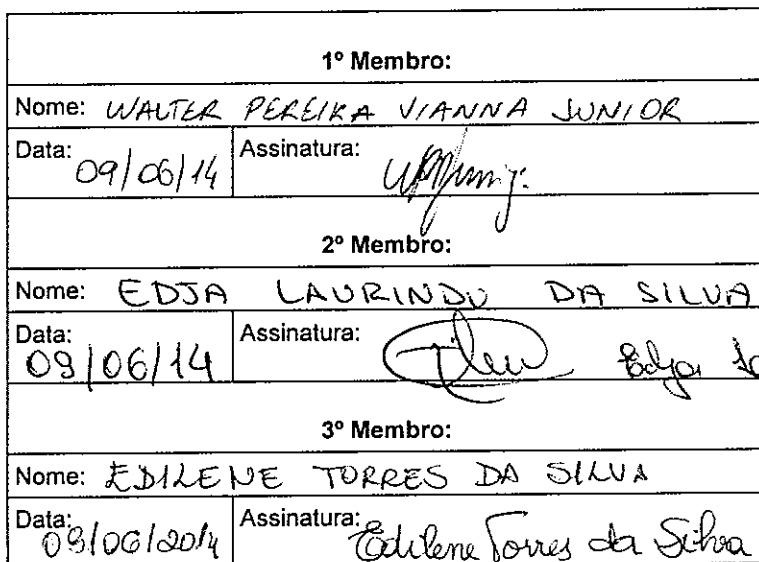 1º Membro:
Nome: WALTER PEREIRA VIANNA JUNIOR
Data: 09/06/14 Assinatura:
2º Membro:
Nome: EDJA LAURINDO DA SILVA
Data: 09/06/14 Assinatura: Edja
3º Membro:
Nome: EDILENE TORRES DA SILVA
Data: 09/06/2014 Assinatura: Edilene Torres da Silva